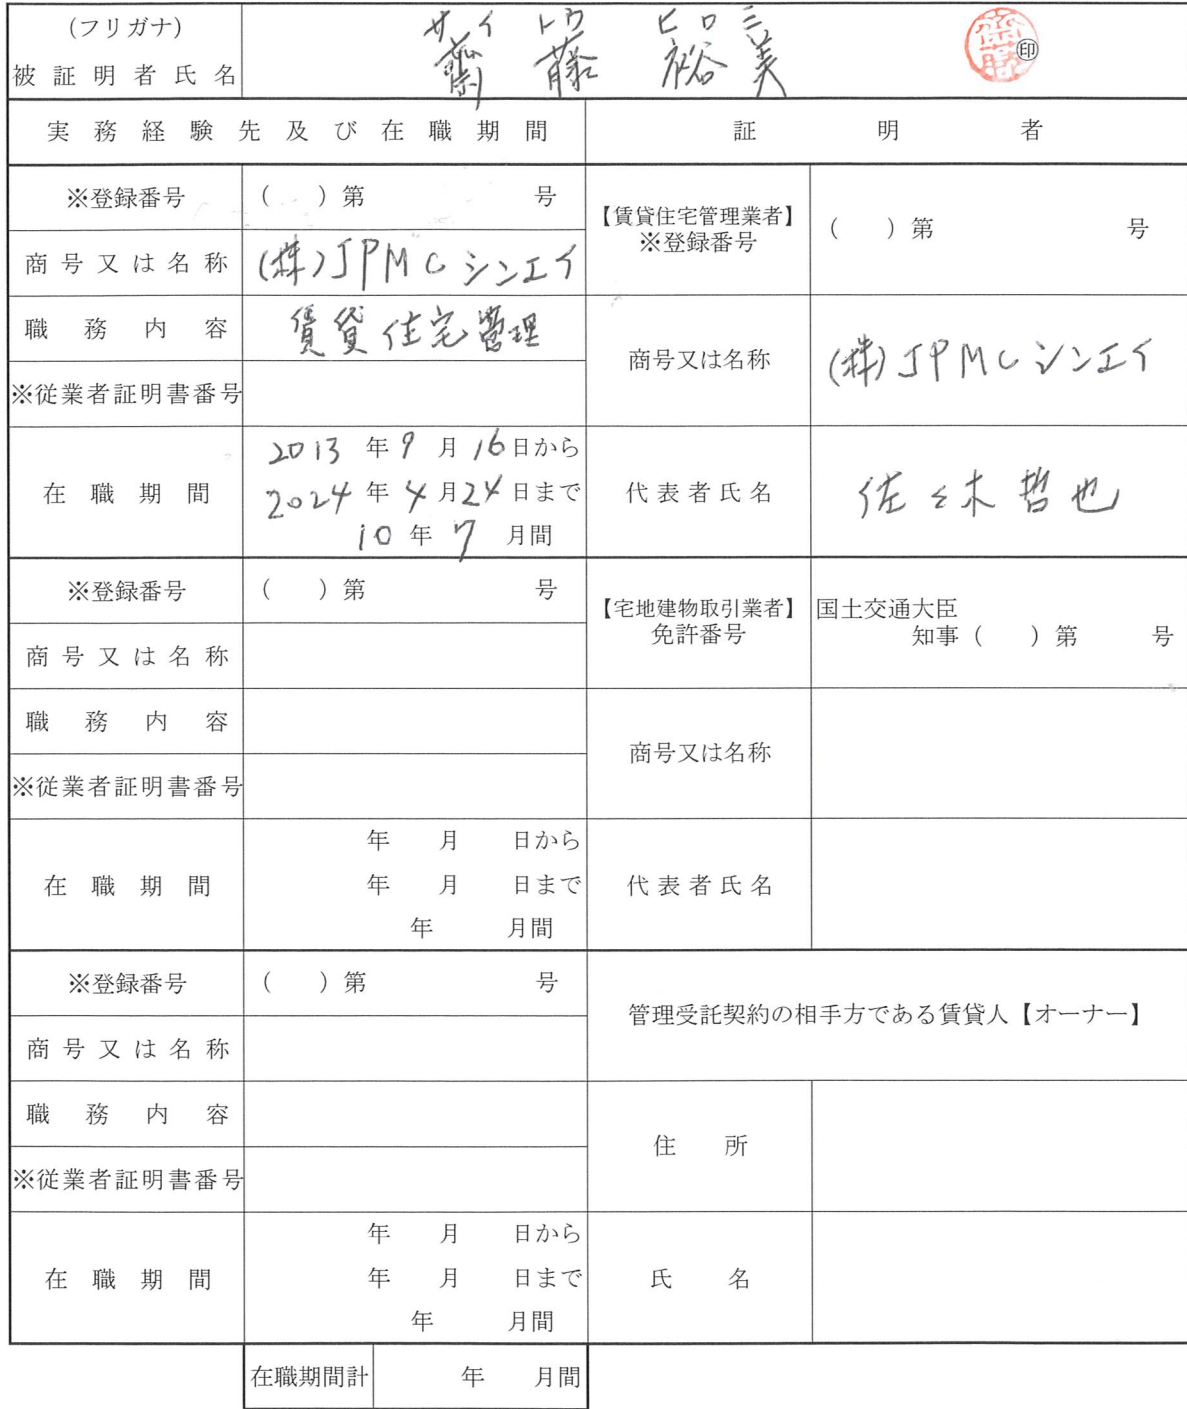 (フリガナ) サイ トウ ヒロミ
被証明者氏名 齋藤 裕美 ㊞
実務経験先及び在職期間 証明者
※登録番号 ( )第 号
【賃貸住宅管理業者】
※登録番号 ( )第 号
商号又は名称 (株)JPMCシンエイ
職務内容 賃貸住宅管理
商号又は名称 (株)JPMCシンエイ
※従業者証明書番号
在職期間
2013年9月16日から
2024年4月24日まで
10年7月間
代表者氏名 佐々木哲也
※登録番号 ( )第 号
【宅地建物取引業者】
免許番号
国土交通大臣
知事( )第 号
商号又は名称
職務内容
商号又は名称
※従業者証明書番号
在職期間
年 月 日から
年 月 日まで
年 月間
代表者氏名
※登録番号 ( )第 号
管理受託契約の相手方である賃貸人【オーナー】
商号又は名称
職務内容
住所
※従業者証明書番号
在職期間
年 月 日から
年 月 日まで
年 月間
氏名
在職期間計 年 月間